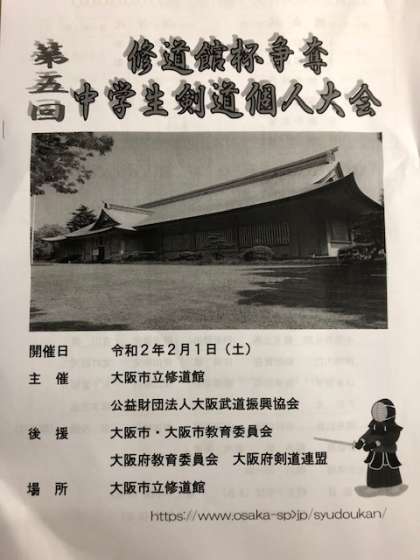 第五回
修道館杯争奪
中学生剣道個人大会
開催日 令和2年2月1日（土）
主 催 大阪市立修道館
公益財団法人大阪武道振興協会
後 援 大阪市・大阪市教育委員会
大阪府教育委員会 大阪府剣道連盟
場 所 大阪市立修道館
https://www.osaka-sp>jp/syudoukan/